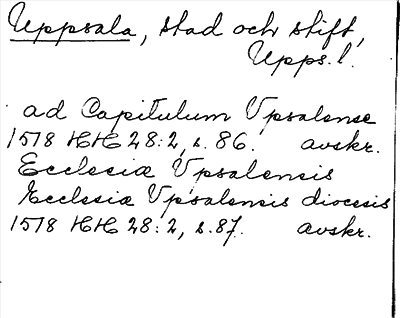 Uppsala, stad och stift,
Upps. l.
ad Capitulum Upsalense
1578 HH 28:2, s. 86. avskr.
Ecclesiæ Upsalensis
Ecclesiæ Upsalensis diocesis
1578 HH 28:2, s. 87. avskr.